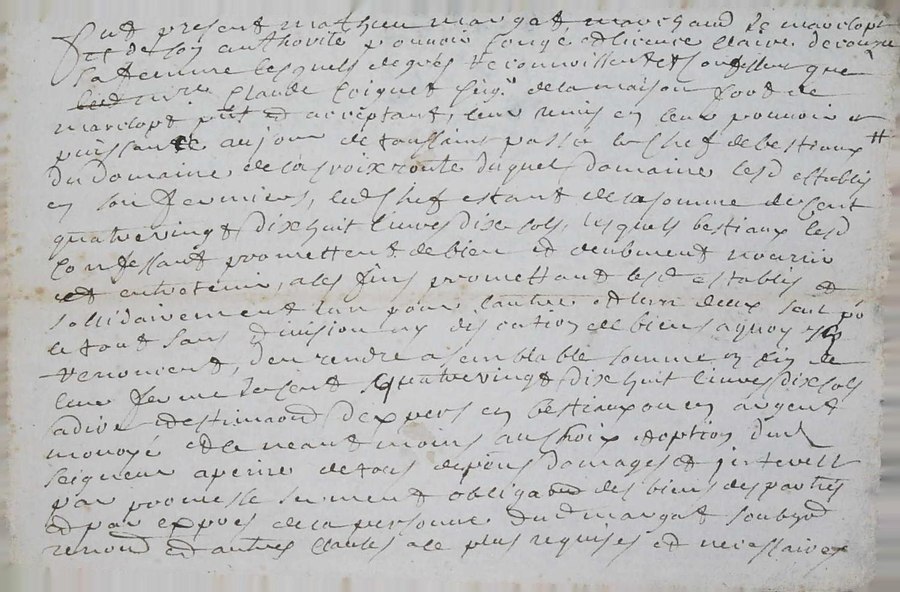 fut present mathieu margat marchand de marclopt
et de son authorité pouvoir congé et licence Claire
sa femme lesquels de grés reconnoissent et confessent que
mre Claude Coignet sieugr de la maison fort de
marclopt pnt et acceptant, leur remis en leur pouvoir et
puissance au jour de toussaint passé le chef de bestiaux #
du domaine de la croix duquel domaine lesd establis
en sont fermiers, led chef estant de la somme de cent
quatrevingt dixhuit livres dix sols, lesquels bestiaux lesd
confessant promettent de bien et deubment nourrir
et entretenir, a les fins promettant lesd establis et
sollidairement lun pour lautre et lun deux seul po
le tout sans division ny discution de biens a quoy ils
renoncent, den rendre a semblable somme en fin de
leur ferme de cent quatrevingt dixhuit livres dix sols
a dire et estimaon dexpers en bestiaux ou en argent
monoyé et le neantmoins au choix et option dud
seigneur a peine de tous depens domages et interest
par promesse serment obligaon des biens des parties
et par expres de la personne dud margat soubzon
renonon et autres clauses a ce plus requises et necessaires